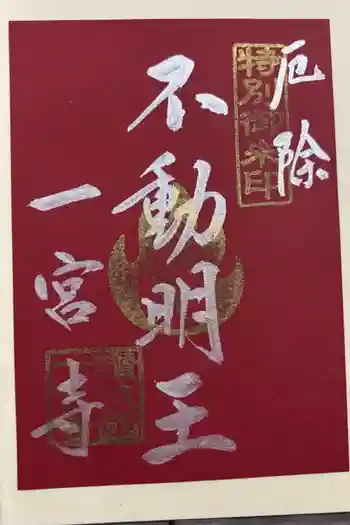 厄除
特別御朱印
不動明王
一宮寺